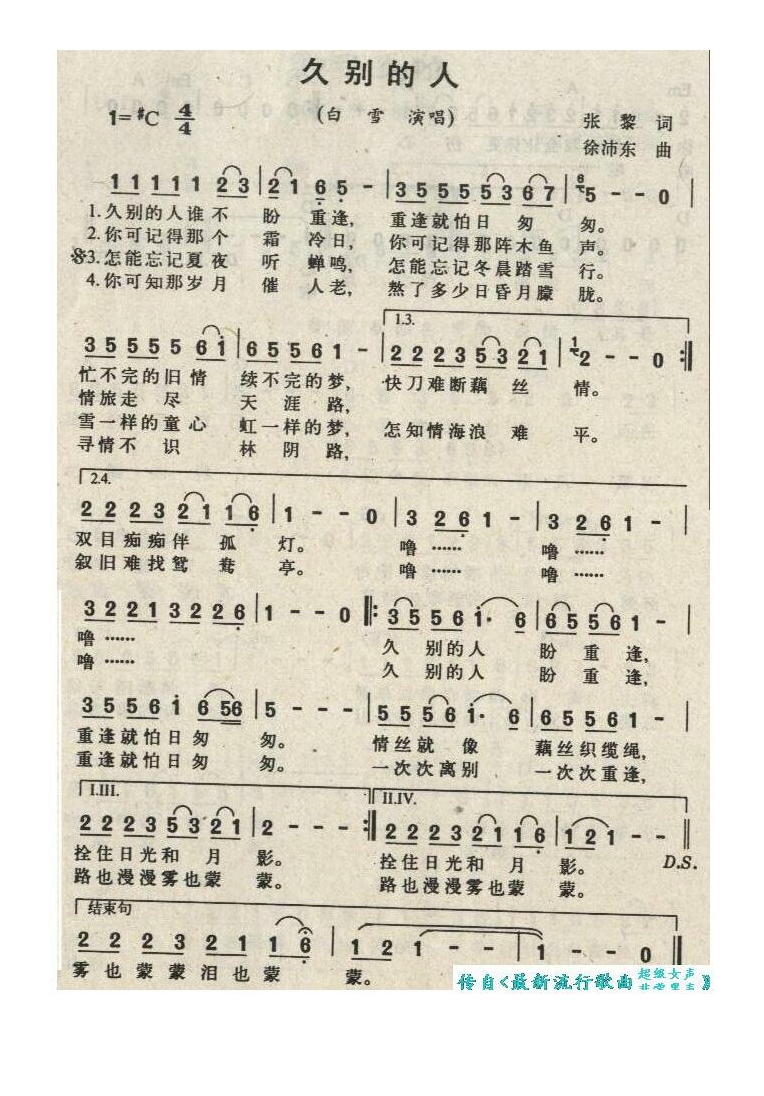 久别的人
1=#C 4/4
(白 雪 演唱)
张 黎 词
徐沛东 曲
1 1 1 1 1 2 3 | 2 1 6 5 - | 3 5 5 5 5 3 6 7 | 6 5 - - 0 |
1.久别的人谁不 盼 重逢, 重逢就怕日 匆 匆。
2.你可记得那个 霜 冷日, 你可记得那阵木鱼 声。
3.怎能忘记夏夜 听 蝉鸣, 怎能忘记冬晨踏雪 行。
4.你可知那岁月 催 人老, 熬了多少日昏月朦 胧。
1.3.
3 5 5 5 5 6 1 | 6 5 5 6 1 - | 2 2 2 3 5 3 2 1 | 1 2 - - 0 :|
忙不完的旧情 续不完的梦, 快刀难断藕 丝 情。
情旅走 尽 天 涯 路,
雪一样的童心 虹一样的梦, 怎知情海浪 难 平。
寻情不 识 林 阴 路,
2.4.
2 2 2 3 2 1 1 6 | 1 - - 0 | 3 2 6 1 - | 3 2 6 1 - |
双目痴痴伴 孤 灯。 噜…… 噜……
叙旧难找鸳 鸯 亭。 噜…… 噜……
3 2 2 1 3 2 2 6 | 1 - - 0 |: 3 5 5 6 1· 6 | 6 5 5 6 1 - |
噜…… 久 别的人 盼 重 逢,
噜…… 久 别的人 盼 重 逢,
3 5 5 6 1 6 56 | 5 - - - | 5 5 5 6 1· 6 | 6 5 5 6 1 - |
重逢就怕日 匆 匆。 情丝就 像 藕丝织缆绳,
重逢就怕日 匆 匆。 一次次离别 一次次重逢,
I.III. II.IV.
2 2 2 3 5 3 2 1 | 2 - - - :| 2 2 2 3 2 1 1 6 | 1 2 1 - - ||
拴住日光和 月 影。 拴住日光和 月 影。 D.S.
路也漫漫雾也蒙 蒙。 路也漫漫雾也蒙 蒙。
结束句
2 2 2 3 2 1 1 6 | 1 2 1 - - | 1 - - 0 ||
雾 也 蒙 蒙 泪 也 蒙 蒙。
传自<最新流行歌曲 超级女声 》